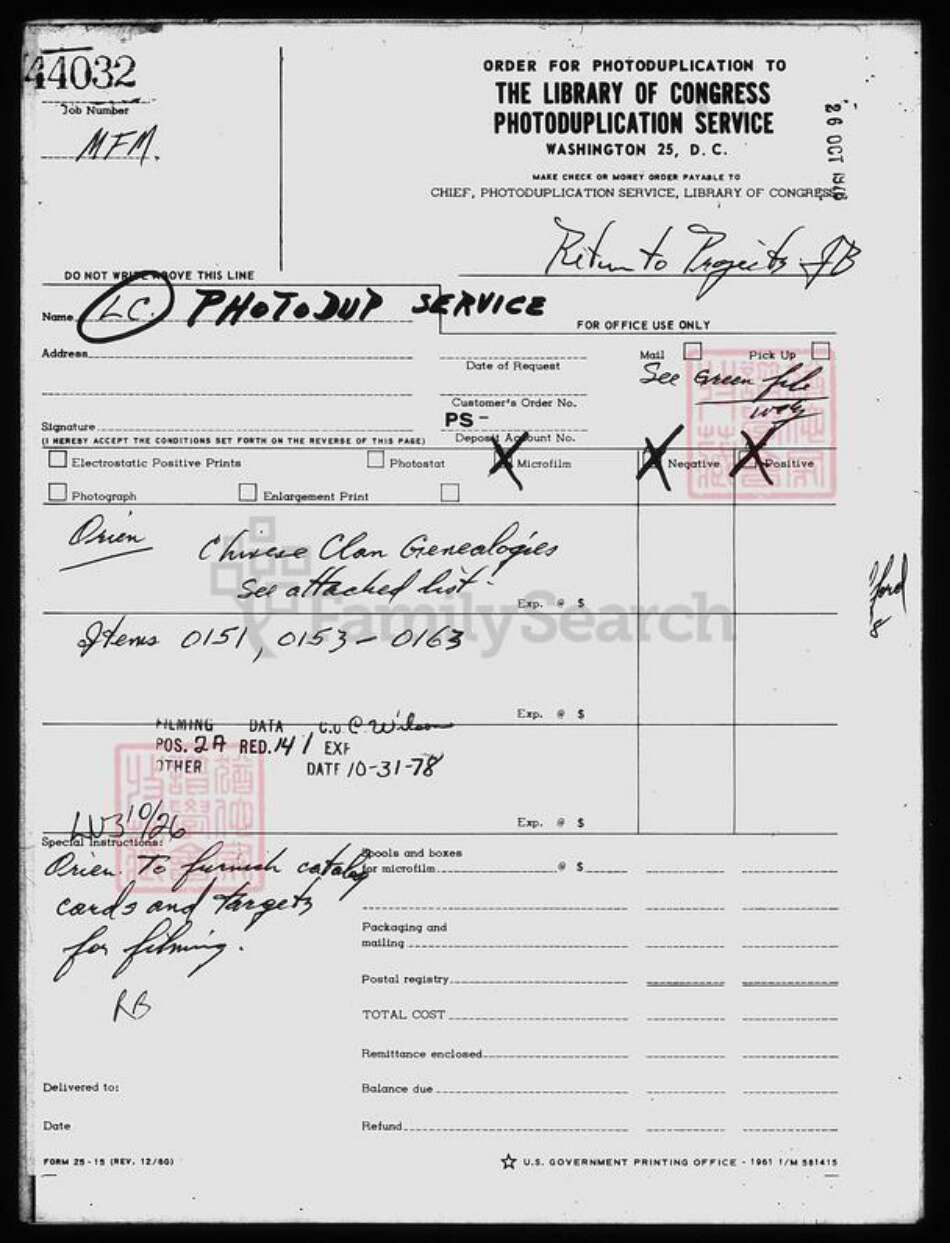 44032
Job Number
MFM.
ORDER FOR PHOTODUPLICATION TO
THE LIBRARY OF CONGRESS
PHOTODUPLICATION SERVICE
WASHINGTON 25, D. C.
MAKE CHECK OR MONEY ORDER PAYABLE TO
CHIEF, PHOTODUPLICATION SERVICE, LIBRARY OF CONGRESS
26 OCT
Return to Projects JB
DO NOT WRITE ABOVE THIS LINE
Name LC. PHOTODUP SERVICE
FOR OFFICE USE ONLY
Address
Date of Request
Mail
Pick Up
See Green file
Customer's Order No.
PS -
Signature
(I HEREBY ACCEPT THE CONDITIONS SET FORTH ON THE REVERSE OF THIS PAGE)
Deposit Account No.
Electrostatic Positive Prints
Photostat
X Microfilm
X Negative
X Positive
Photograph
Enlargement Print
Orien
Chinese Clan Genealogies
See attached list.
Exp. @ $
FamilySearch
Items 0151, 0153 - 0163
Exp. @ $
FILMING DATA C.O C. Wilson
POS. 2A RED. 14 / EXP
OTHER DATE 10-31-78
10/26
Exp. @ $
Special Instructions:
Orien. To furnish catalog
cards and targets
for filming.
RB
Spools and boxes
for microfilm @ $
Packaging and
mailing
Postal registry
TOTAL COST
Remittance enclosed
Delivered to:
Balance due
Date
Refund
FORM 25-15 (REV. 12/60)
☆ U.S. GOVERNMENT PRINTING OFFICE - 1961 I/M 581415